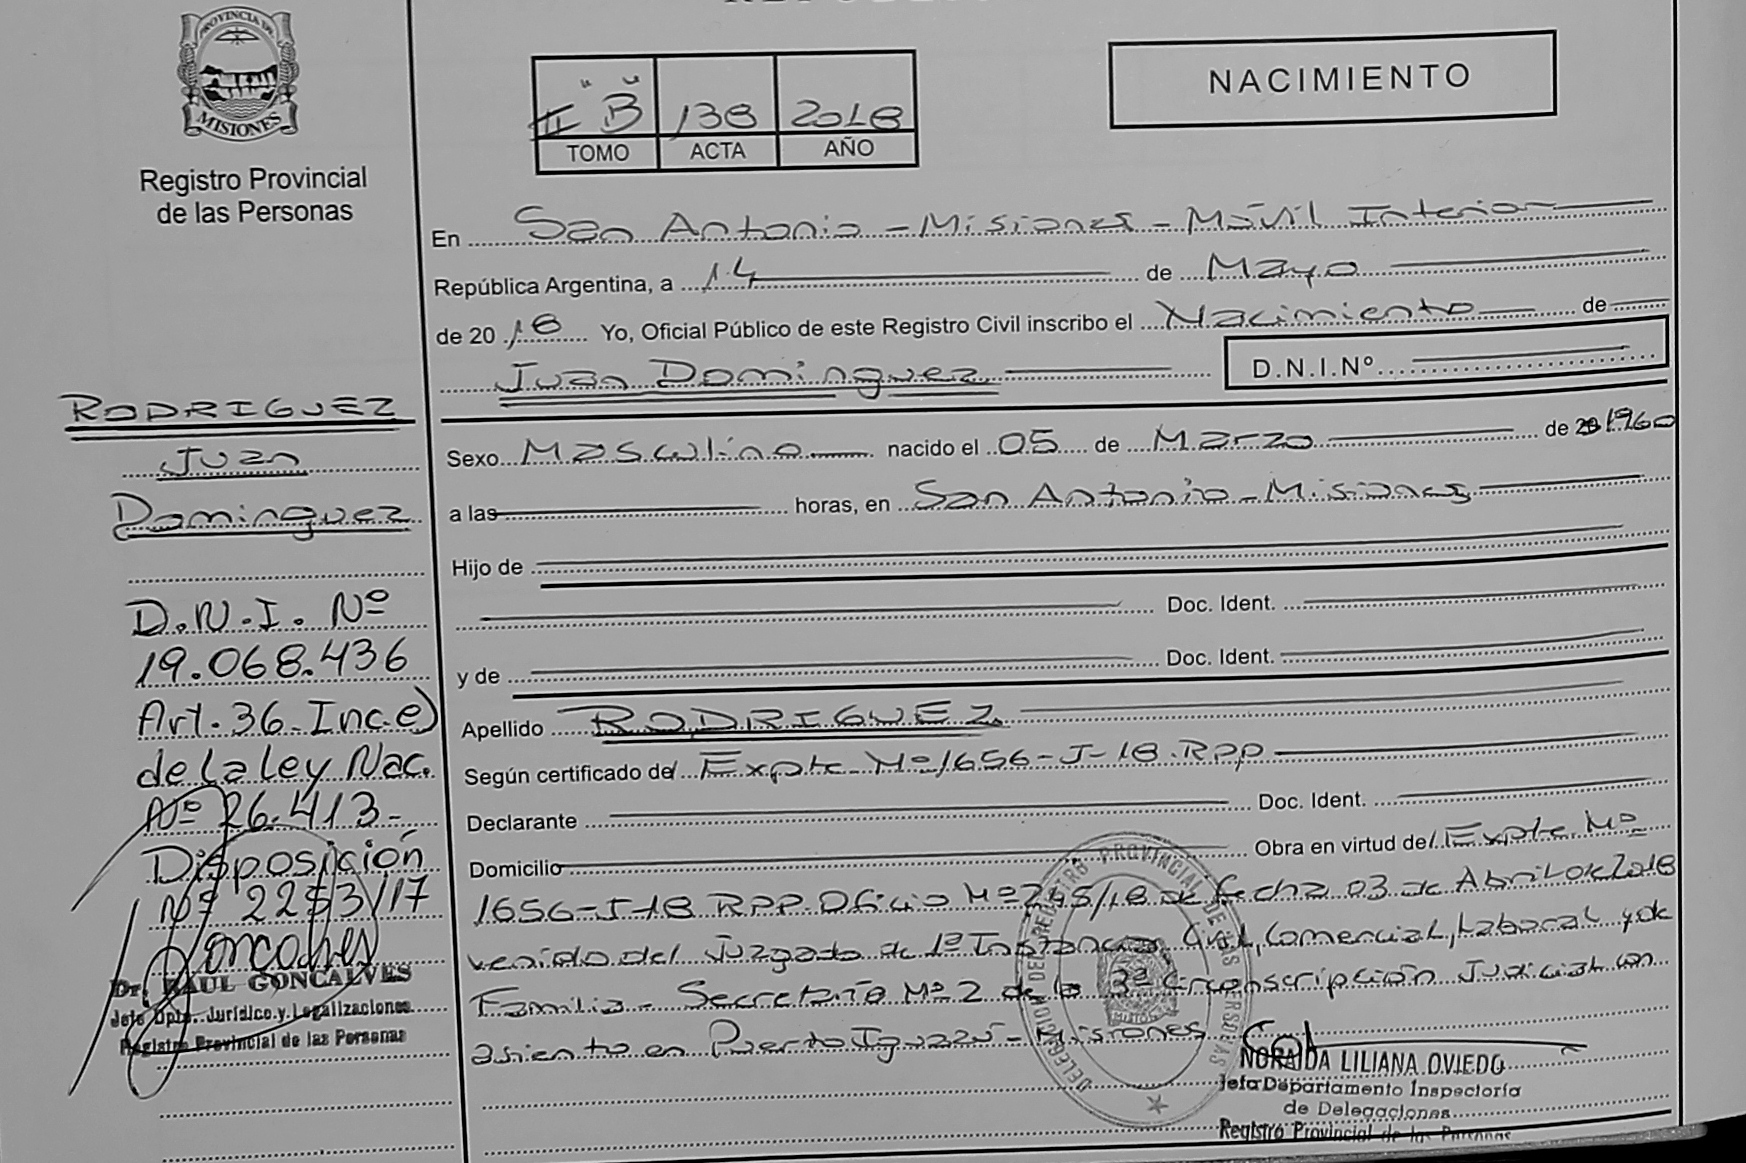 PROVINCIA DE
MISIONES
Registro Provincial
de las Personas
RODRIGUEZ
Juan
Dominguez
D.N.I. Nº
19.068.436
Art. 36 Inc. e)
de la ley Nac.
Nº 26.413-
Disposición
Nº 2253/17
Dr. RAUL GONCALVES
Jefe Dpto. Jurídico y Legalizaciones
Registro Provincial de las Personas
II "B" 138 2018
TOMO ACTA AÑO
NACIMIENTO
En San Antonio - Misiones - Móvil Interior
República Argentina, a 14 de Mayo
de 20 18 Yo, Oficial Público de este Registro Civil inscribo el Nacimiento de
Juan Dominguez D.N.I.Nº
Sexo Masculino nacido el 05 de Marzo de 1960
a las horas, en San Antonio - Misiones
Hijo de
Doc. Ident.
y de Doc. Ident.
Apellido RODRIGUEZ
Según certificado del Expte Nº 1656-J-18.RPP
Declarante Doc. Ident.
Domicilio Obra en virtud del Expte Nº
1656-J-18 RPP Oficio Nº 245/18 de fecha 03 de Abril de 2018
venido del Juzgado de 1º Instancia Civil, Comercial, Laboral y de
Familia - Secretaría Nº 2 de la 3ª Circunscripción Judicial con
asiento en Puerto Iguazú - Misiones
NORAIDA LILIANA OVIEDO
Jefa Departamento Inspectoría
de Delegaciones
Registro Provincial de las Personas